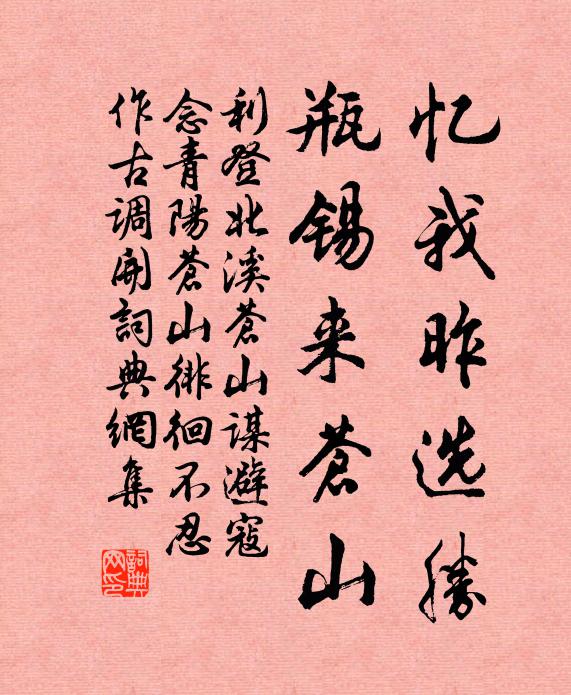 忆我昨选胜
瓶锡来苍山
利登北溪苍山谋避寇
念青陽苍山徘徊不忍
作古调開詞典網集
詞典网印